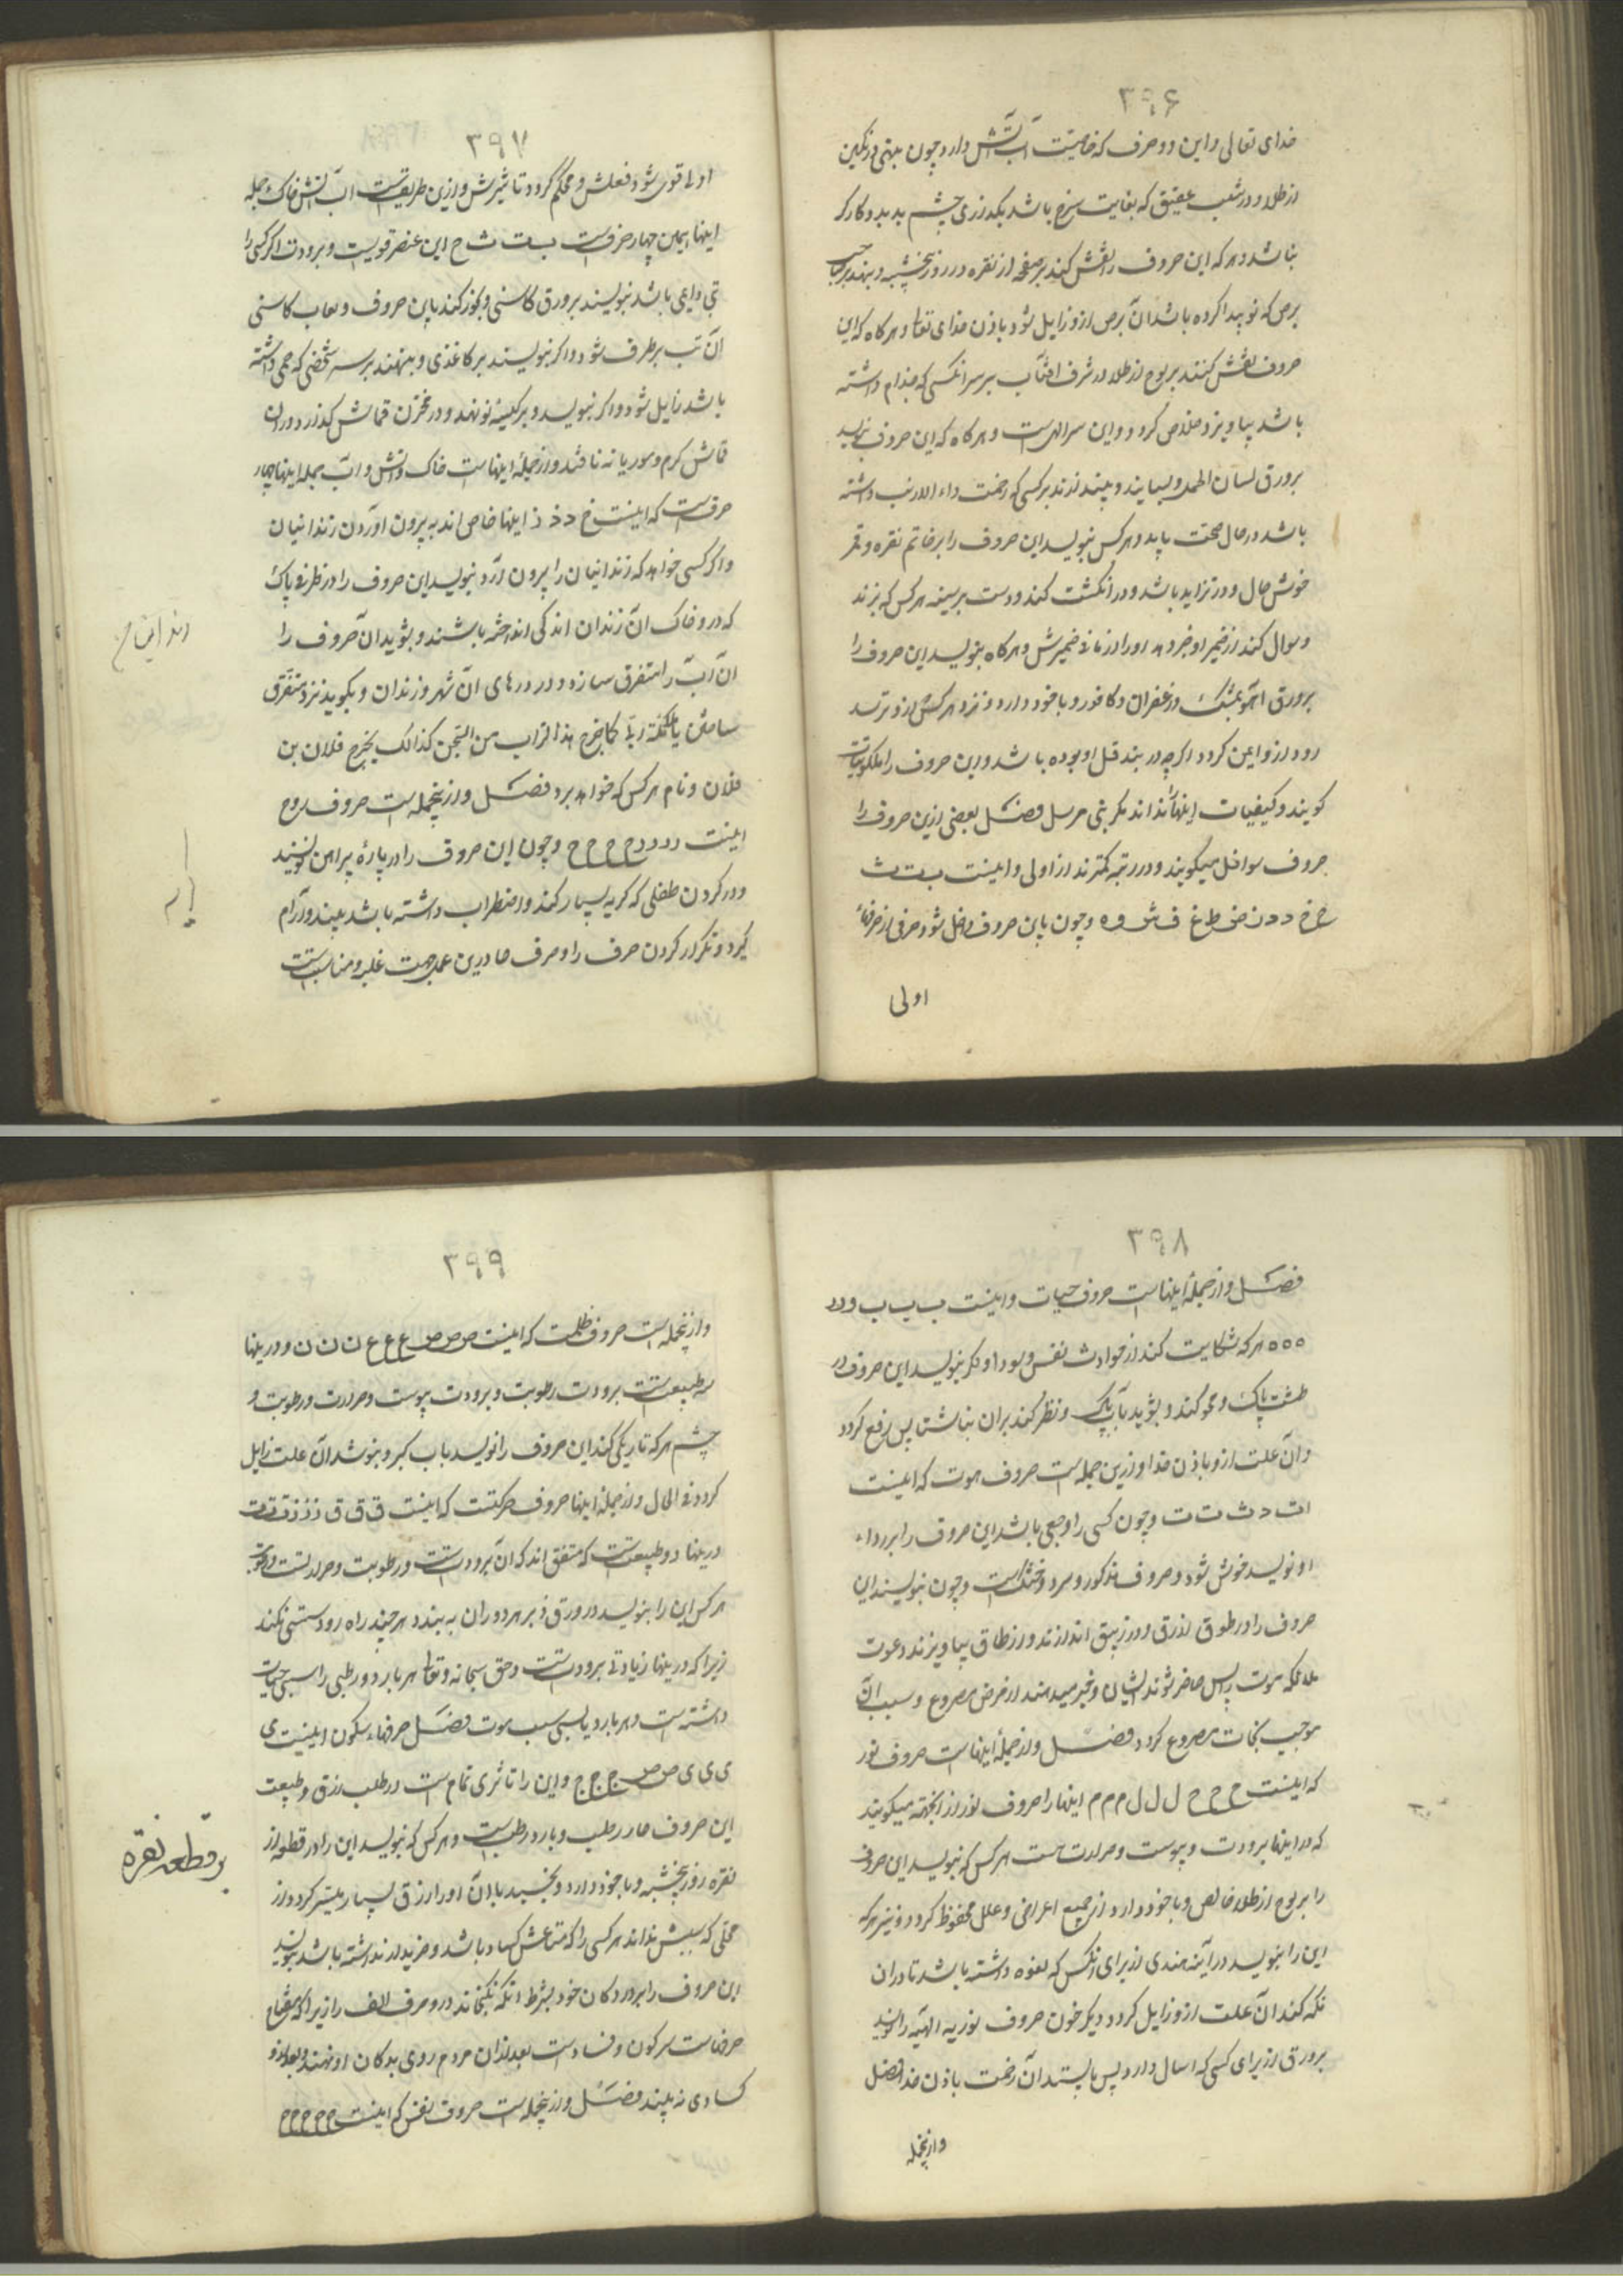 ۳۹۶
خدای تعالی و این دو حرف که خاصیت آب آتش دارد چون بنهی در نکین
از طلا و در شعب عقیق که بغایت سرخ باشد بکدازری چشم بد بدو کارکر
نباشد و هر که این حروف را نقش کند بر صفحه از نقره در روز پنجشنبه و بنهد بر صاحب
برص که نو پیدا کرده باشد آن برص ازو زایل شود باذن خدای تعا و هر کاه که این
حروف نقش کنند بر لوح از طلا در شرف افتاب بر سر انکسی که جذام داشته
باشد بیاویزد خلاص کردد و این سر الهیست و هر کاه که این حروف بنویسد
بر ورق لسان الحمل و بسایند و ببندند بر کسی که زحمت داء الارنب داشته
باشد در حال صحت یابد و هر کس بنویسد این حروف را بر خاتم نقره و قمر
خوش حال و در تزاید باشد و در انکشت کند و دست بر سینه هر کس که بزند
و سوال کند از ضمیر او خبر دهد او را از ما فی ضمیرش و هر کاه بنویسد این حروف را
بر ورق آهو بمشک و زعفران و کافور و با خود دارد و نزد هر کس ازو ترسد
رود ازو ایمن کردد اکرچه در بند قتل او بوده باشد و این حروف را ملکوتیات
کویند و کیفیات اینها را نداند مکر نبی مرسل فصل بعضی ازین حروف را
حروف سوافل میکویند و در رتبه کمترند از اولی و اینست ب ت ث
ج خ د ذ ز ض ط غ ف ش و ه و چون باین حروف داخل شود حرفی از حرفهاء
اولی
۳۹۷
اولی قوی شود فعلش و محکم کردد تاثیرش و ازین طریقست آب آتش خاک جمله
اینها همین چهار حرفست ب ت ث ح این عنصر قویست و برودت اکر کسی را
تبی داعی باشد بنویسند بر ورق کاسنی و بخور کند باین حروف و لعاب کاسنی
آن تب برطرف شود و اکر بنویسند بر کاغذی و بنهند بر سر شخصی که حمی داشته
باشد زایل شود و اکر بنویسد و بر کیسه نو نهند و در مخزن قماش کذارد در ان
قماش کرم و موریانه نافتد و از جمله اینهاست خاک و آتش و آب جمله اینها چهار
حرفست که اینست خ د ذ ز اینها خاص اند به بیرون اوردن زندانیان
و اکر کسی خواهد که زندانیان را بیرون آرد بنویسد این حروف را در ظرفی پاک
که در و خاک آن زندان اندکی انداخته باشند و بشوید آن حروف را
آن آب را متفرق سازد و در درهای آن شهر و زندان و بکوید نزد متفرق
ساختن یا ملائکة ربی کما یخرج هذا التراب من السجن کذالک یخرج فلان بن
فلان و نام هر کس که خواهد برد فصل و از نجمله است حروف روح
اینست د د د د ح ح ح ح و چون این حروف را در پارهٔ پیراهن نویسند
و در کردن طفلی که کریه بسیار کند و اضطراب داشته باشد ببندد آرام
کیرد و تکرار کردن حرف را و حرف حا درین عمل جهت غلبه و مناسبتست
۳۹۸
فصل و از جمله اینهاست حروف حیات و اینست ب ب ب ب و د د
ه ه ه هر که شکایت کند از حوادث نفس و سودا و فکر بنویسد این حروف در
طشت پاک و محو کند و بشوید بآب پاک و نظر کند بران بناشتا پس رفع کردد
و آن علت ازو باذن خدا و ازین جمله است حروف موت که اینست
ا ت د ث ت ت ت و چون کسی را وجعی باشد این حروف را بر رداء
او نویسد خوش شود و حروف مذکور و سرد و خشک است و چون بنویسند این
حروف را در طوق ازرق و در زیبق اندازند و از طاق بیاویزند دعوت
ملائکه موت پس حاضر شوند ایشان و خبر میدهند از مرض مصروع و سبب آن
موجب نجات مصروع کردد فصل و از جملهٔ اینهاست حروف نور
که اینست ح ح ح ل ل ل م م م اینها را حروف نور از انجهة میکویند
که در اینها برودت و یبوست و حرارت هست هر کس که بنویسد این حروف
را بر لوح از طلاء خالص و با خود دارد از جمیع اعراض و علل محفوظ کردد و نیز هر که
این را بنویسد در آینه هندی از برای انکس که لقوه داشته باشد تا در ان
نکه کند آن علت ازو زایل کردد دیکر خون حروف نوریه الهیه را نویسد
بر ورق از برای کسی که اسهال دارد پس بایستد آن زحمت باذن خدا فصل
و ازنجمله
۳۹۹
و ازنجمله است حروف ظلمت که اینست ص ص ص ع ع ع ن ن ن و در اینها
سه طبیعتست برودت رطوبت و برودت یبوست و حرارت و رطوبت و
چشم هر که تاریکی کند این حروف را نویسد بآب کبر و بنوشد آن علت زایل
کردد فی الحال و از جملهٔ اینها حروف حرکتست که اینست ق ق ق ذ ذ ذ ت ت ت
در اینها دو طبیعتست که متفق اند که آن برودتست و رطوبت و حرارتست و رطوبت
هر کس این را بنویسد در ورق و بر هر دو ران به بندد هر چند راه رود سستی نکند
زیرا که در اینها زیادتی برودتست و حق سبحانه و تعا هر بارد و رطبی را سبب حیات
داشته است و هر بارد یابسی سبب موت فصل حرفهاء سکون اینست ی
ی ی ی ص ص ج ج ج و این را تاثری تمام است در طلب رزق و طبیعت
این حروف حار رطب و بارد رطبست و هر کس که بنویسد این را در قطعه از
نقره روز پنجشنبه و با خود دارد و بخسبد با آن او را رزق بسیار میسر کردد از
محلی که سببش نداند هر کسی را که متاعش کساد باشد و خریدار نداشته باشد بنویسد
این حروف را بر در دکان خود بشرط آنکه نکنجاند در و حرف الف را زیرا که مفتاح
حرفهاست سر کون و فساد است بعد از ان مردم روی بدکان او نهند و بعد ازو
کسادی نه بیند فصل و ازنجمله است حروف نقش کم اینست م م م م م
بر قطعه نقره